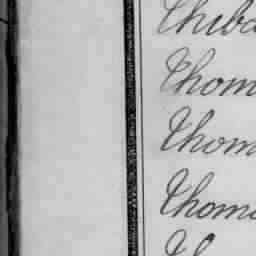 Thiba
Thom
Thom
Thoma